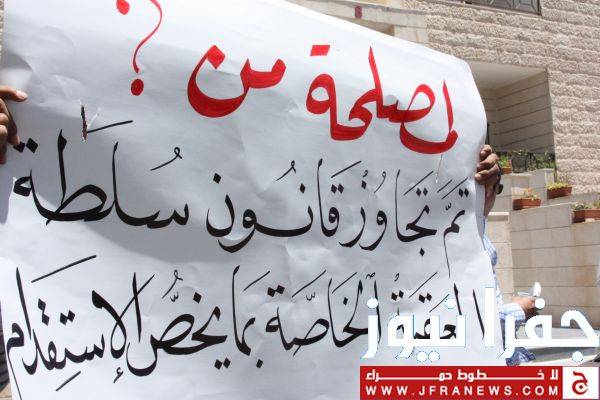 لمصلحة من ؟
تمّ تجَاوُز قَانُون سُلطَة
العقبة الخاصّة بما يخصّ الإستِقدَام
جفرا نيوز
لا خطوط حمراء
WWW.JFRANEWS.COM